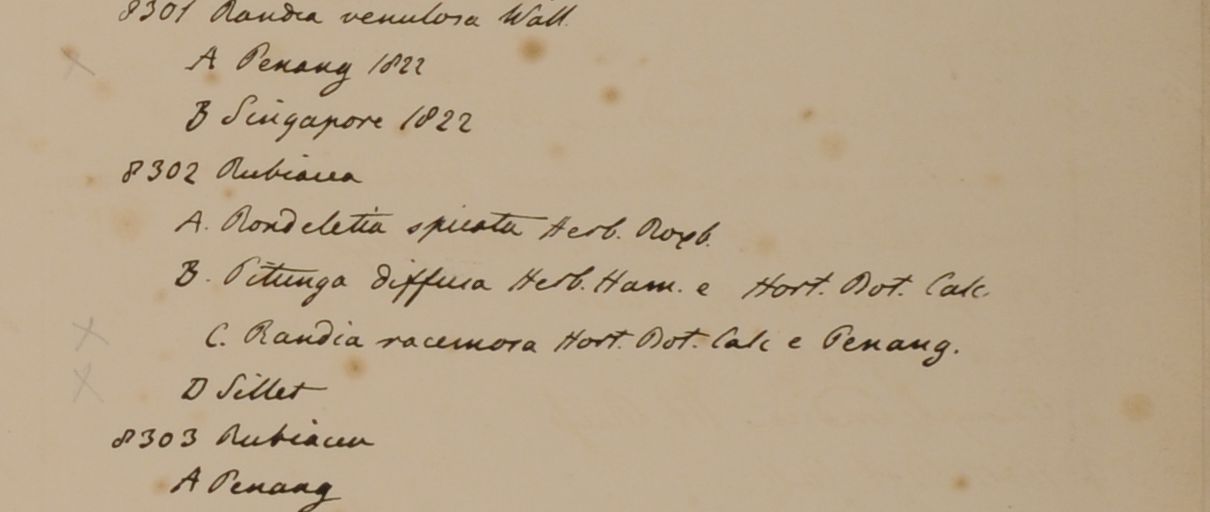 8301 Randia venulosa Wall.
A Penang 1822
B Singapore 1822
8302 Rubiacea
A. Rondeletia spicata Herb. Roxb.
B. Pitunga diffusa Herb. Ham. e Hort. Bot. Calc.
C. Randia racemosa Hort. Bot. Calc e Penang.
D Sillet
8303 Rubiacea
A Penang